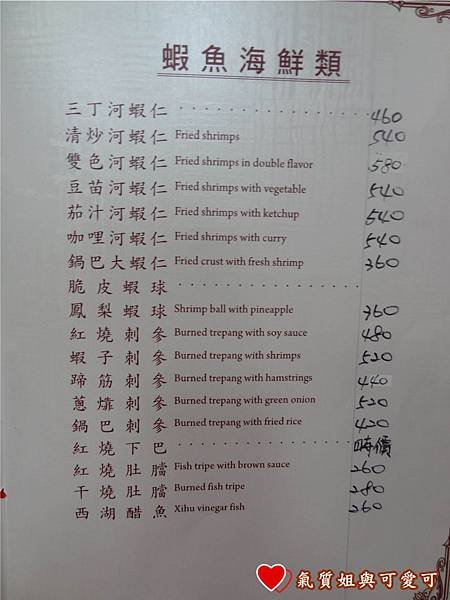 蝦魚海鮮類
三丁河蝦仁 460
清炒河蝦仁 Fried shrimps 540
雙色河蝦仁 Fried shrimps in double flavor 580
豆苗河蝦仁 Fried shrimps with vegetable 540
茄汁河蝦仁 Fried shrimps with ketchup 540
咖哩河蝦仁 Fried shrimps with curry 540
鍋巴大蝦仁 Fried crust with fresh shrimp 360
脆皮蝦球
鳳梨蝦球 Shrimp ball with pineapple 360
紅燒刺參 Burned trepang with soy sauce 480
蝦子刺參 Burned trepang with shrimps 520
蹄筋刺參 Burned trepang with hamstrings 440
蔥㸆刺參 Burned trepang with green onion 520
鍋巴刺參 Burned trepang with fried rice 420
紅燒下巴 時價
紅燒肚膛 Fish tripe with brown sauce 260
干燒肚膛 Burned fish tripe 280
西湖醋魚 Xihu vinegar fish 260
氣質姐與可愛可